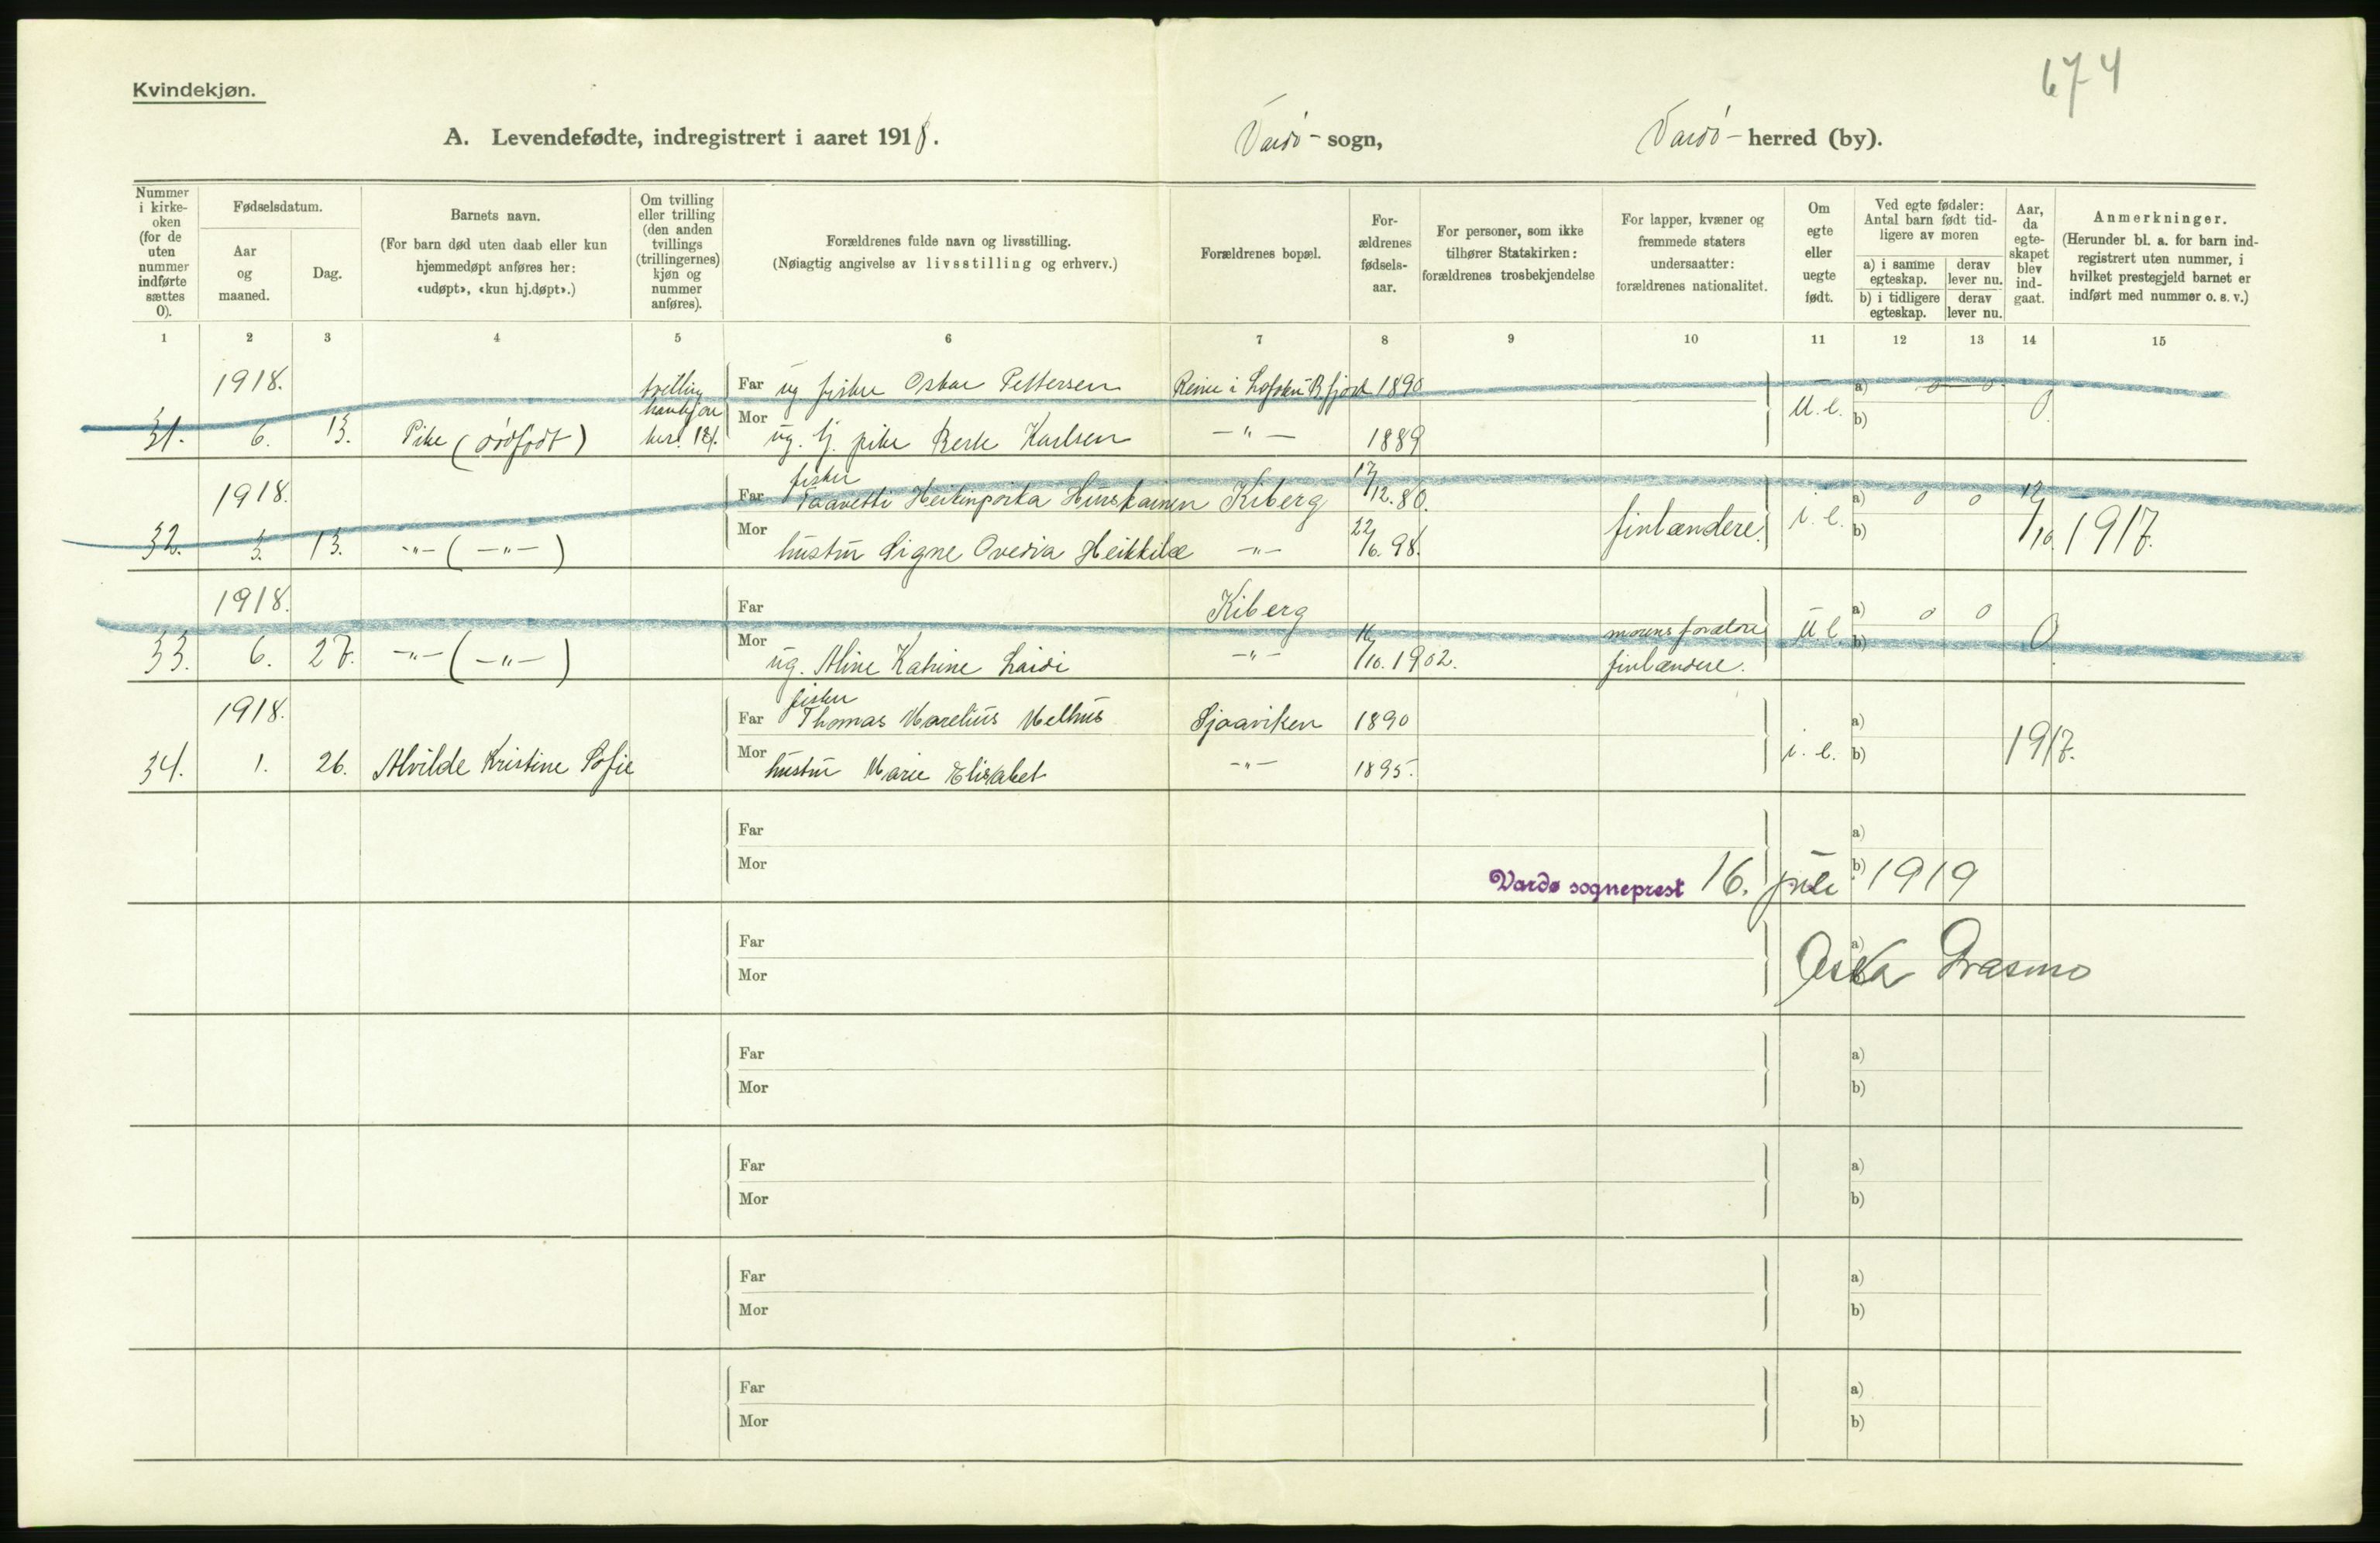 674
Kvindekjøn.
A. Levendefødte, indregistrert i aaret 1918. Vardö - sogn, Vardö - herred (by).
Nummer i kirke-oken (for de uten nummer indførte sættes 0).
Fødselsdatum.
Aar og maaned.
Dag.
Barnets navn.
(For barn død uten daab eller kun hjemmedøpt anføres her: «udøpt», «kun hj.døpt».)
Om tvilling eller trilling (den anden tvillings (trillingernes) kjøn og nummer anføres).
Forældrenes fulde navn og livsstilling.
(Nøiagtig angivelse av livsstilling og erhverv.)
Forældrenes bopæl.
For-ældrenes fødsels-aar.
For personer, som ikke tilhører Statskirken: forældrenes trosbekjendelse
For lapper, kvæner og fremmede staters undersaatter: forældrenes nationalitet.
Om egte eller uegte født.
Ved egte fødsler: Antal barn født tid-ligere av moren
a) i samme egteskap.
derav lever nu.
b) i tidligere egteskap.
derav lever nu.
Aar, da egte-skapet blev ind-gaat.
Anmerkninger.
(Herunder bl. a. for barn ind-registrert uten nummer, i hvilket prestegjeld barnet er indført med nummer o. s. v.)
1 2 3 4 5 6 7 8 9 10 11 12 13 14 15
1918. tvilling Far ug fisker Oskar Pettersen Reine i Lofoten 1890 a) 0 0
31. 6. 13. Pike (dødfødt) Mor ug. tj. pike Karlsen -"- 1889 U.e. b) 0
1918. Far fisker Taavetti Heikinpoika Kiberg 17/12.80. a) 0 0 12
32. 3. 13. -"- (-"-) Mor hustru Signe Ovedia Heikkilæ -"- 22/6.98. finlændere. i.e. b) /10. 1917.
1918. Far Kiberg a) 0 0
33. 6. 27. -"- (-"-) Mor ug. Aline Katrine Laidi -"- 16/10.1902. morens foreldre finlændere. U.e. b) 0
1918. Far fisker Thomas Marelius Melhus Sjaaviken 1890 a)
34. 1. 26. Alvilde Kristine Sofie Mor hustru Marie Elisabet -"- 1895. i.e. b) 1917.
Far a)
Mor b)
Vardø sogneprest 16. juli 1919
Far a)
Mor
Far a)
Mor b)
Far a)
Mor b)
Far a)
Mor b)
Far a)
Mor b)